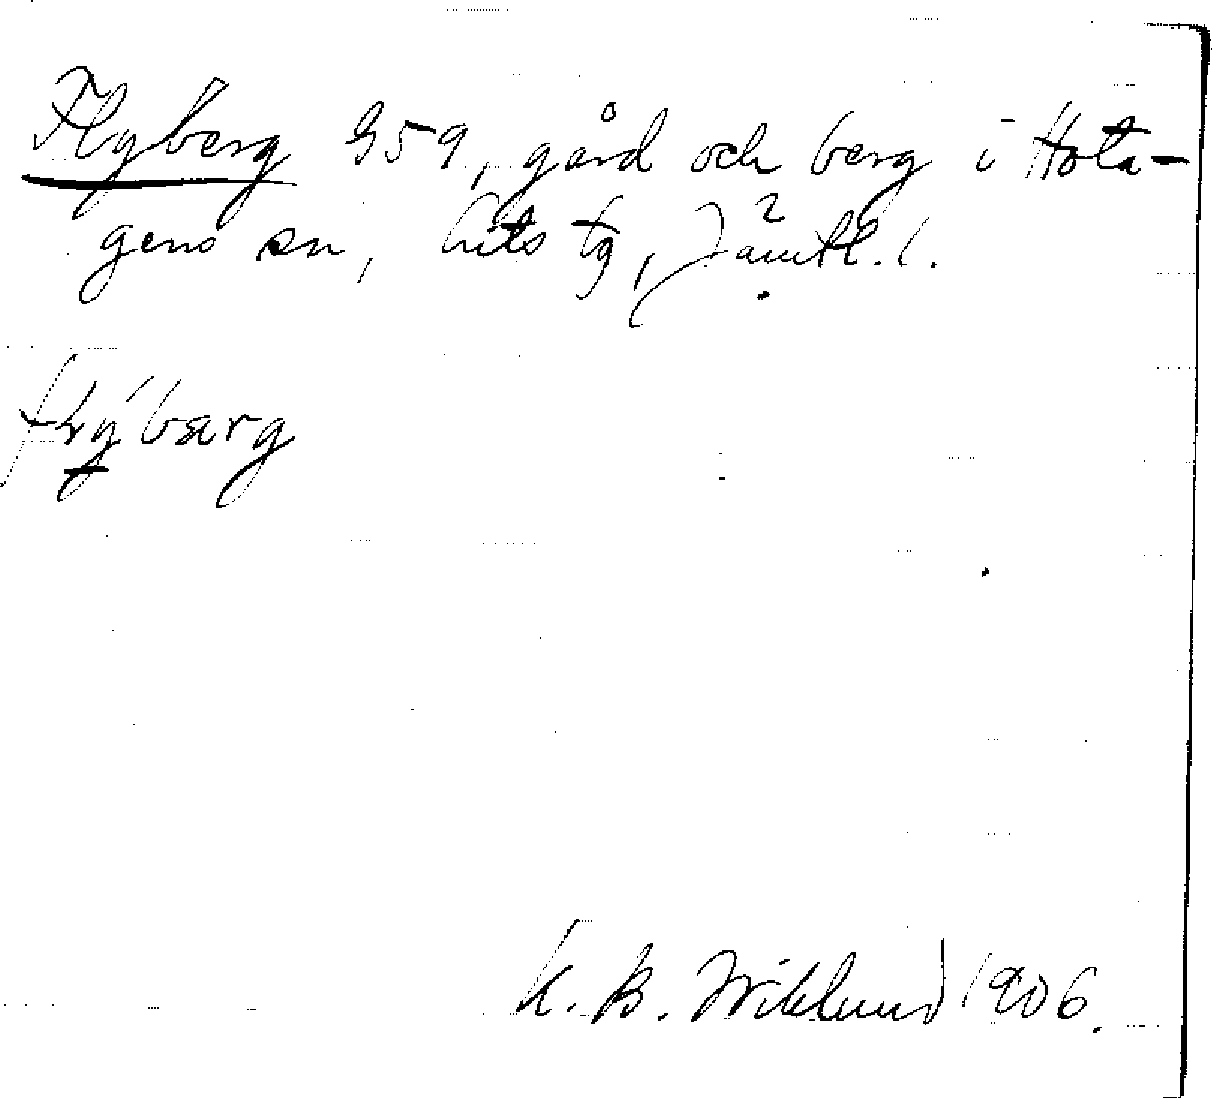 Flyberg 959, gård och berg i Hota-
gens sn, Lits tg, Jämtl. l.
flýbærg
K. B. Wiklund 1906.